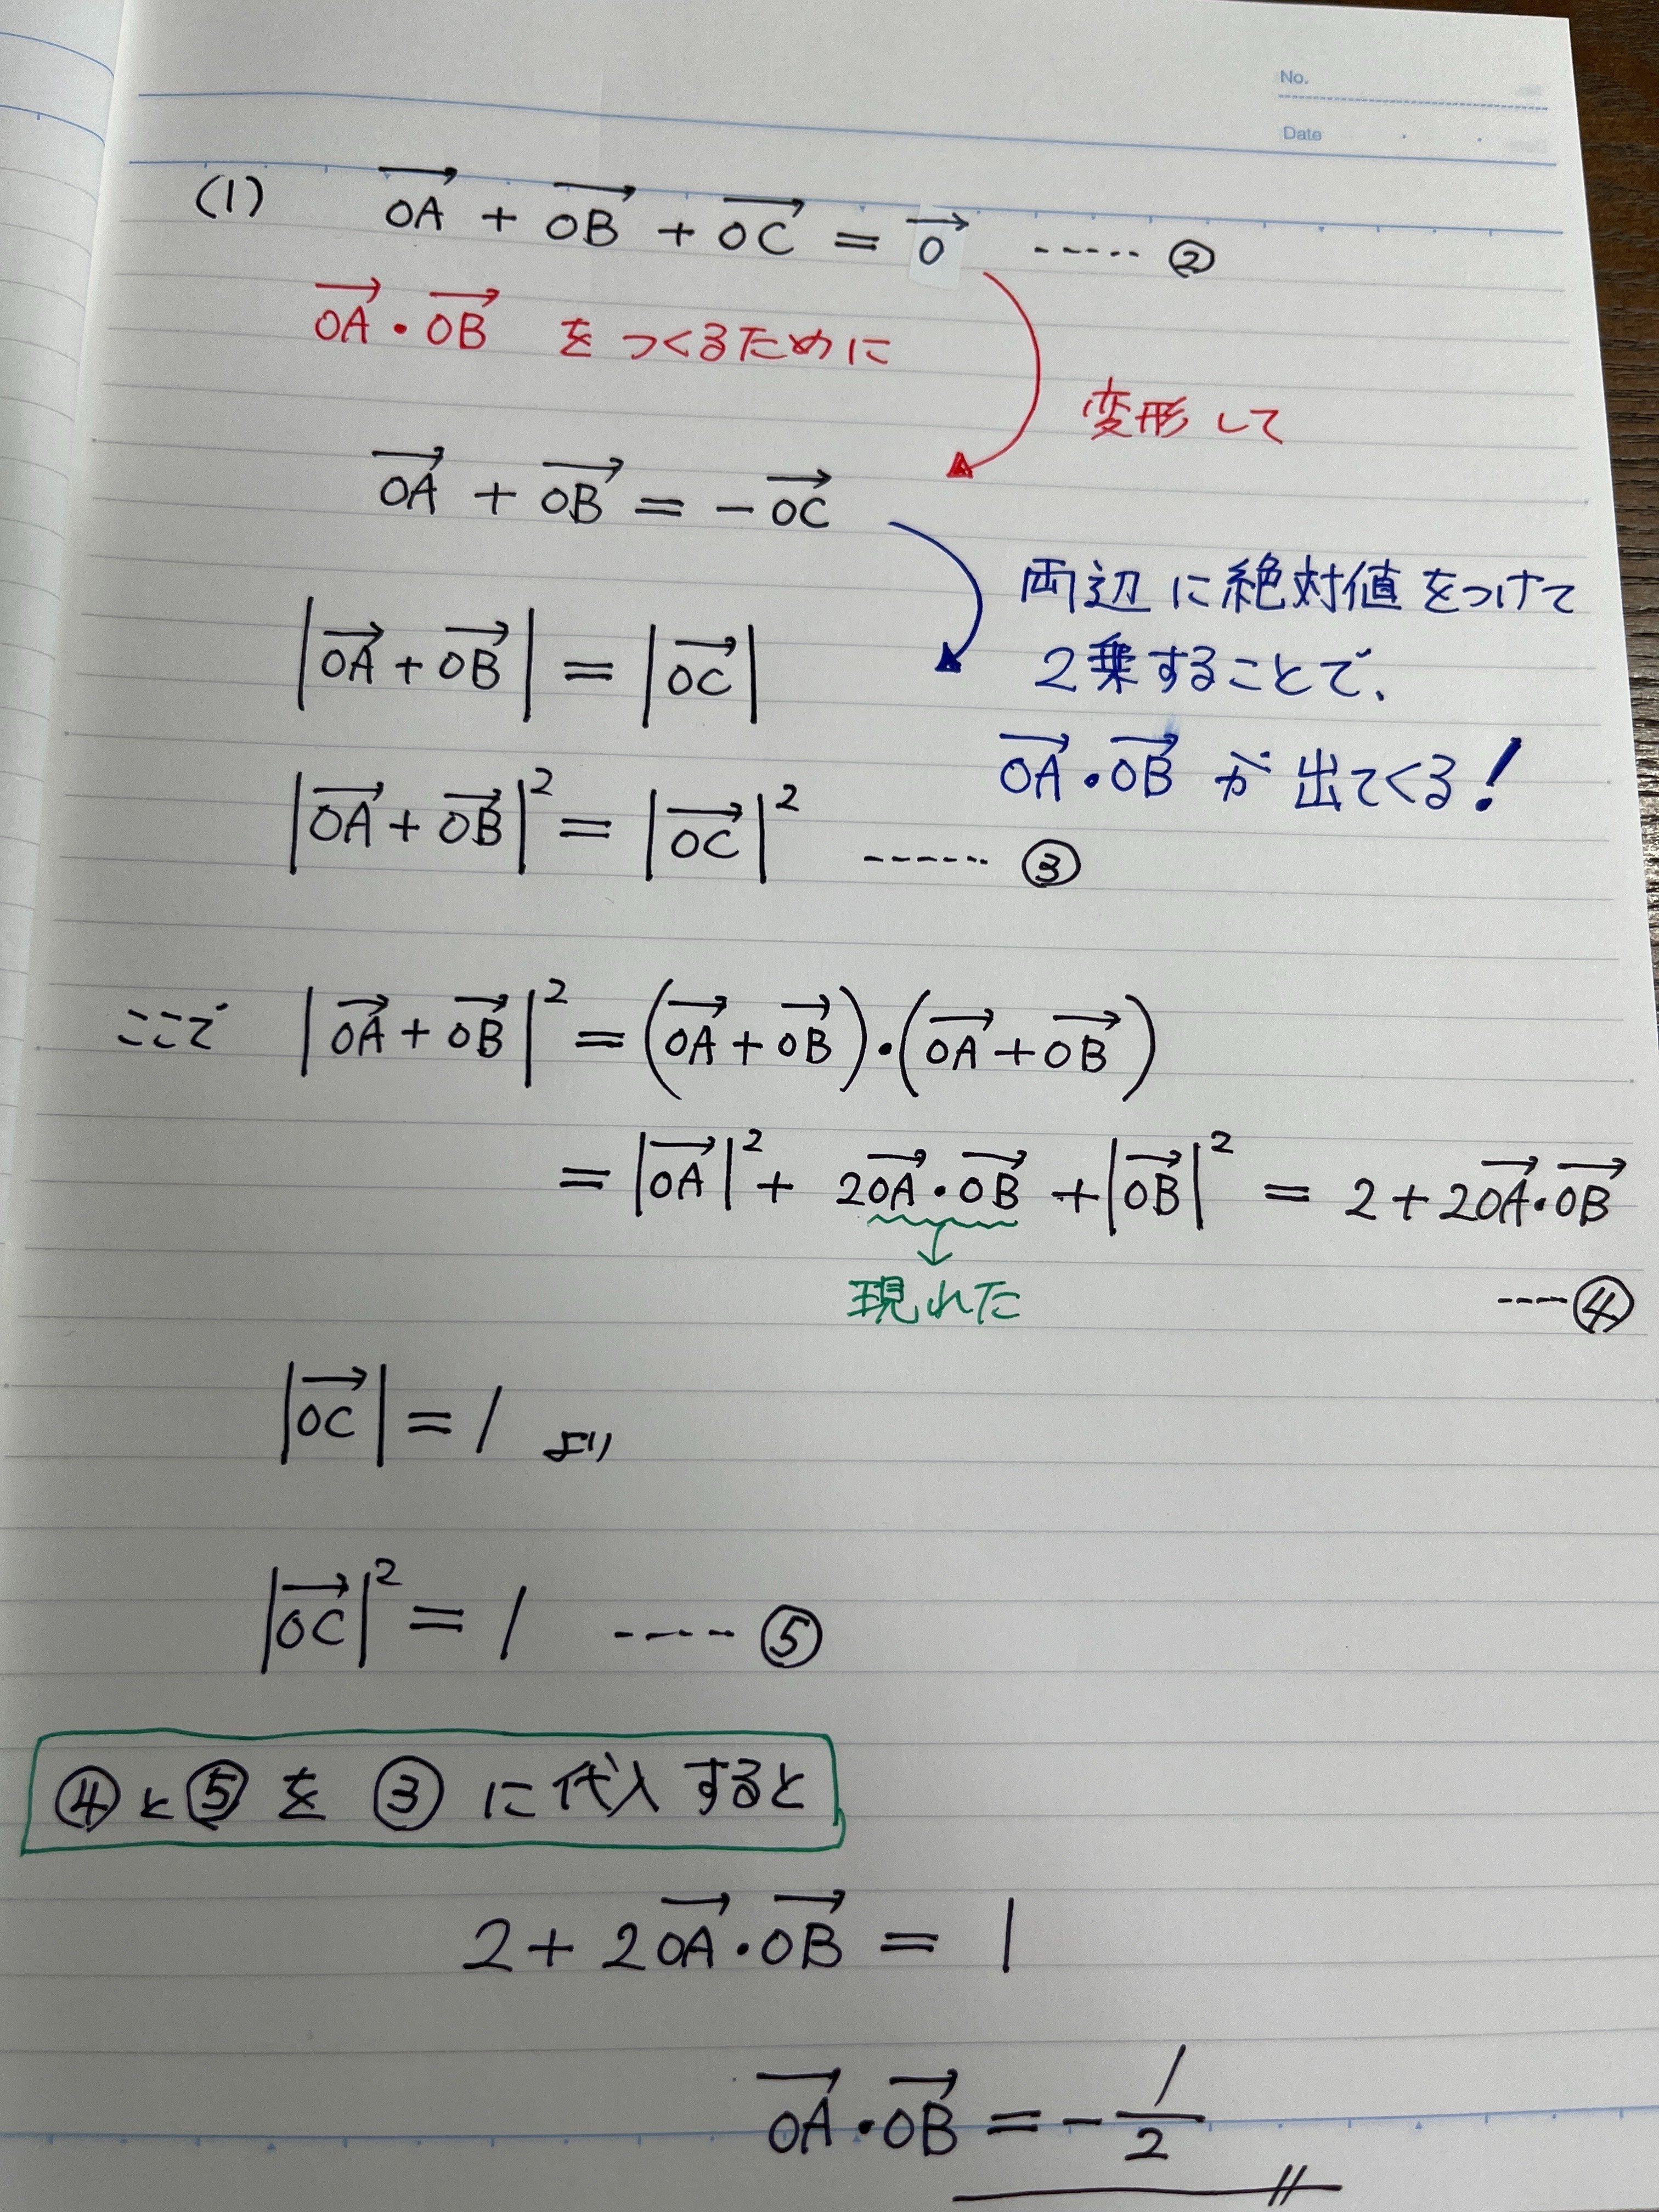 No.
Date
(1) →OA + →OB + →OC = →0 ----- ②
→OA・→OB をつくるために
変形して
→OA + →OB = -→OC
両辺に絶対値をつけて
|→OA + →OB| = |→OC|
2乗することで、
→OA・→OB が出てくる!
|→OA + →OB|² = |→OC|² ------ ③
ここで |→OA + →OB|² = (→OA + →OB)・(→OA + →OB)
= |→OA|² + 2→OA・→OB + |→OB|² = 2 + 2→OA・→OB
現れた ----④
|→OC| = 1 より
|→OC|² = 1 ----- ⑤
④と⑤を③に代入すると
2 + 2→OA・→OB = 1
→OA・→OB = -1/2